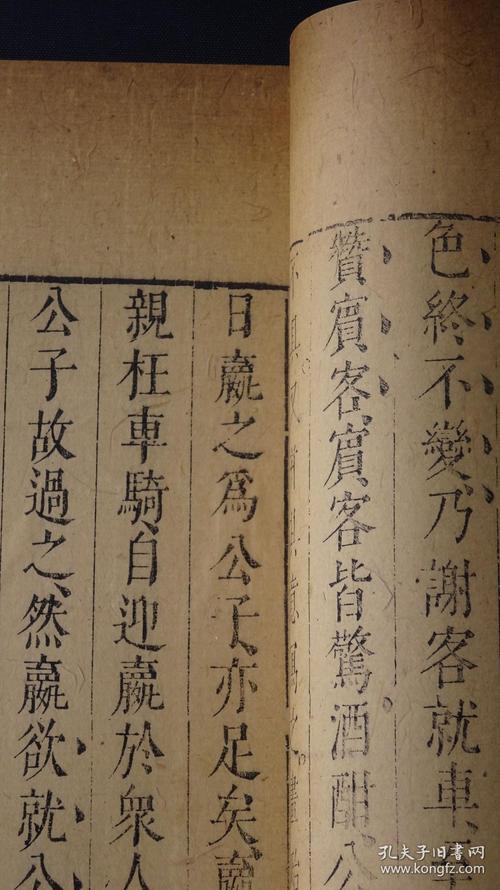 色終不變乃謝客就車至
贊賓客賓客皆驚酒酣公
日嬴之為公子亦足矣嬴
親枉車騎自迎嬴於衆人
公子故過之然嬴欲就公
孔夫子旧書网
www.kongfz.com